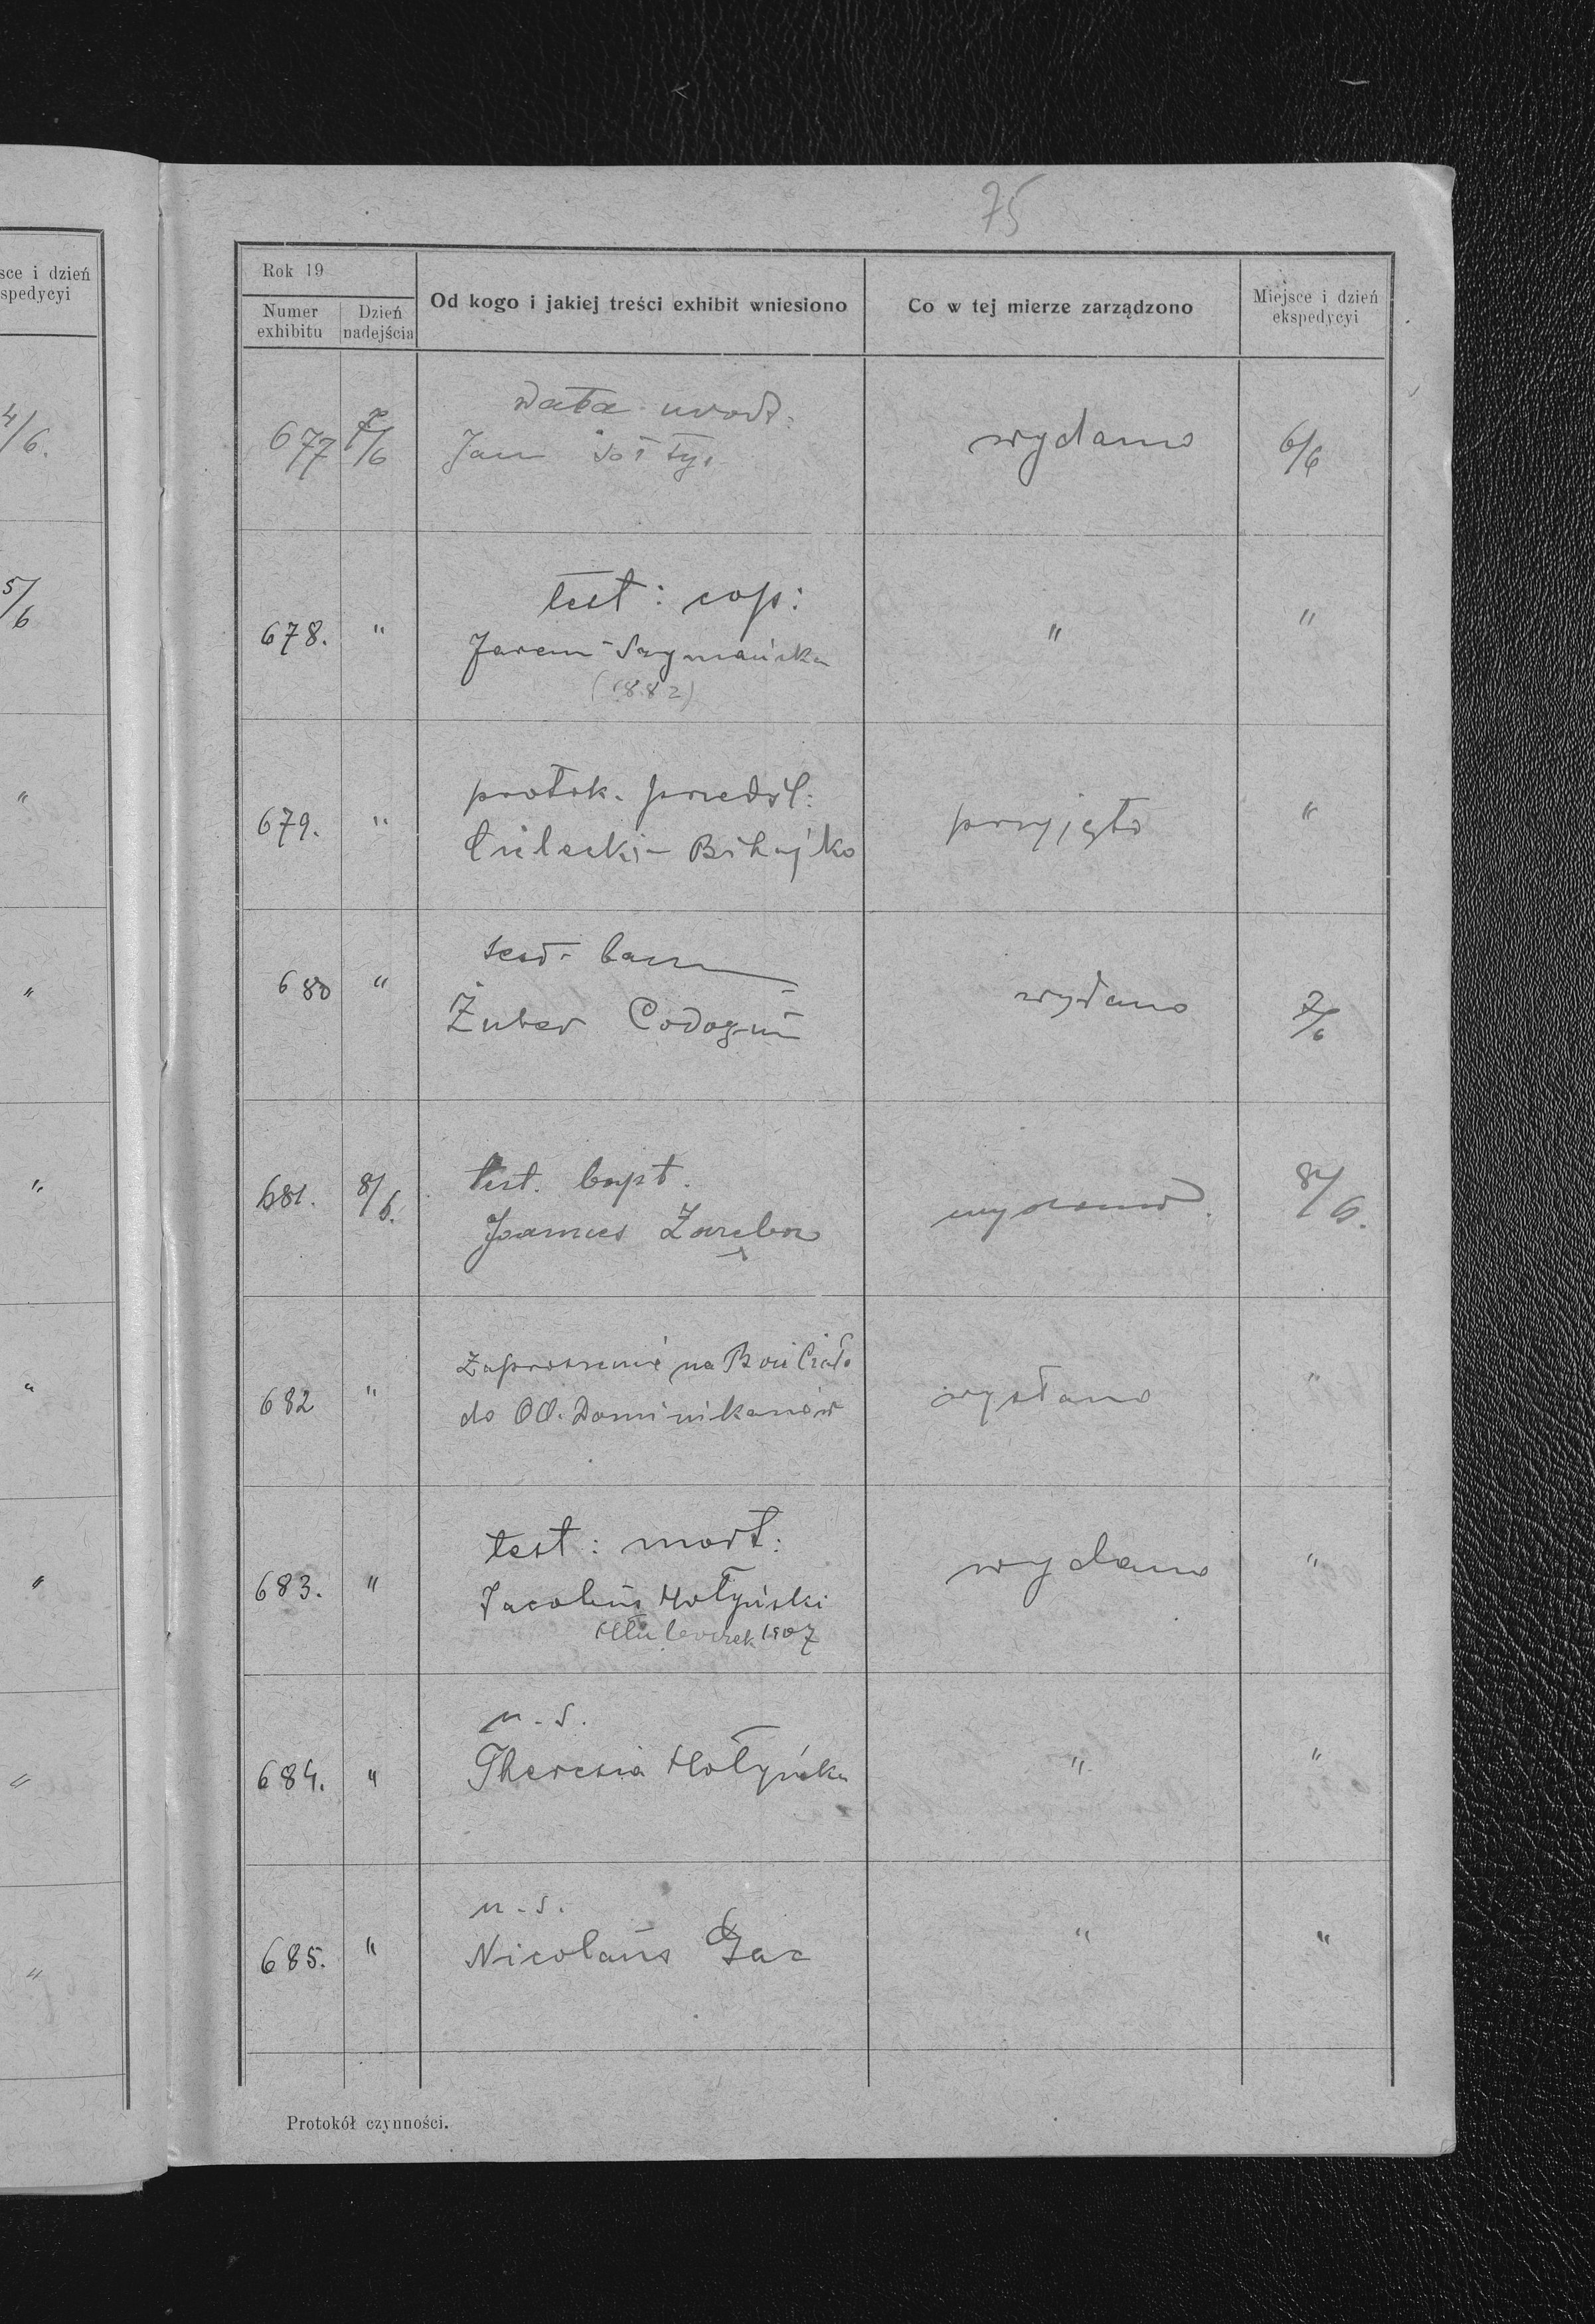 75
sce i dzień
spedycyi
4/6.
5/6
"
"
"
"
"
"
"
Rok 19
Numer exhibitu
Dzień nadejścia
Od kogo i jakiej treści exhibit wniesiono
Co w tej mierze zarządzono
Miejsce i dzień ekspedycyi
data urodz:
677 7/6 Jan wydano 6/6
test: cop:
678. " Jarem - Szymańska " "
(1882)
protok. przedśl:
679. " Bihajko przyjęto "
test. bann
680 " Żuber wydano 7/6
test. bapt.
681. 8/6. Joannes Zaręba wydano. 8/6.
Zaproszenie na Boże Ciało
682 " do OO. Dominikanów wysłano "
test: mort:
683. " Jacobus Hołyński wydano "
Hłuboczek 1907
u. s.
684. " Theresia Hołyńska " "
u. s.
685. " Nicolaus " "
Protokół czynności.